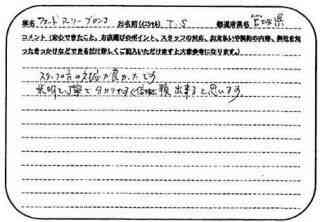 車名 フォード エスケープ ブロンコ お名前(イニシャル) T.S 都道府県名 宮城県
コメント(安心できたこと、お店選びのポイント、スタッフの対応、お支払いや契約の内容、弊社を知ったきっかけなどできるだけ詳しくご記入いただけますと大変参考になります。)
スタッフの方の対応が良かったです
説明も丁寧で分かりやすく信頼出来ると思います